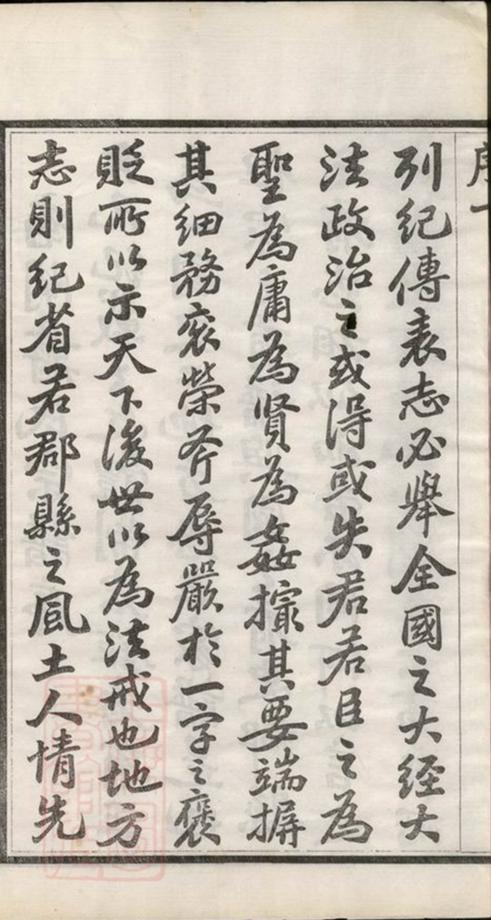 序一
列紀傳表志必舉全國之大經大
法政治之或得或失君若臣之為
聖為庸為賢為姦撮其要端摒
其細務袞榮斧辱嚴於一字之褒
貶所以示天下後世以為法戒也地方
志則紀省若郡縣之風土人情先